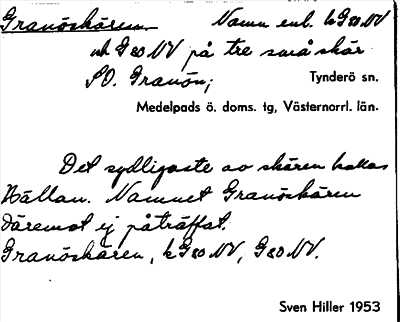 Granöskären Namn enl. kG80NV
och G80NV på tre små skär
SO. Granön; Tynderö sn.
Medelpads ö. doms. tg, Västernorrl. län.
Det sydligaste av skären kallas
Hällan. Namnet Granöskären
däremot ej påträffat.
Granöskären, kG80NV, G80NV.
Sven Hiller 1953